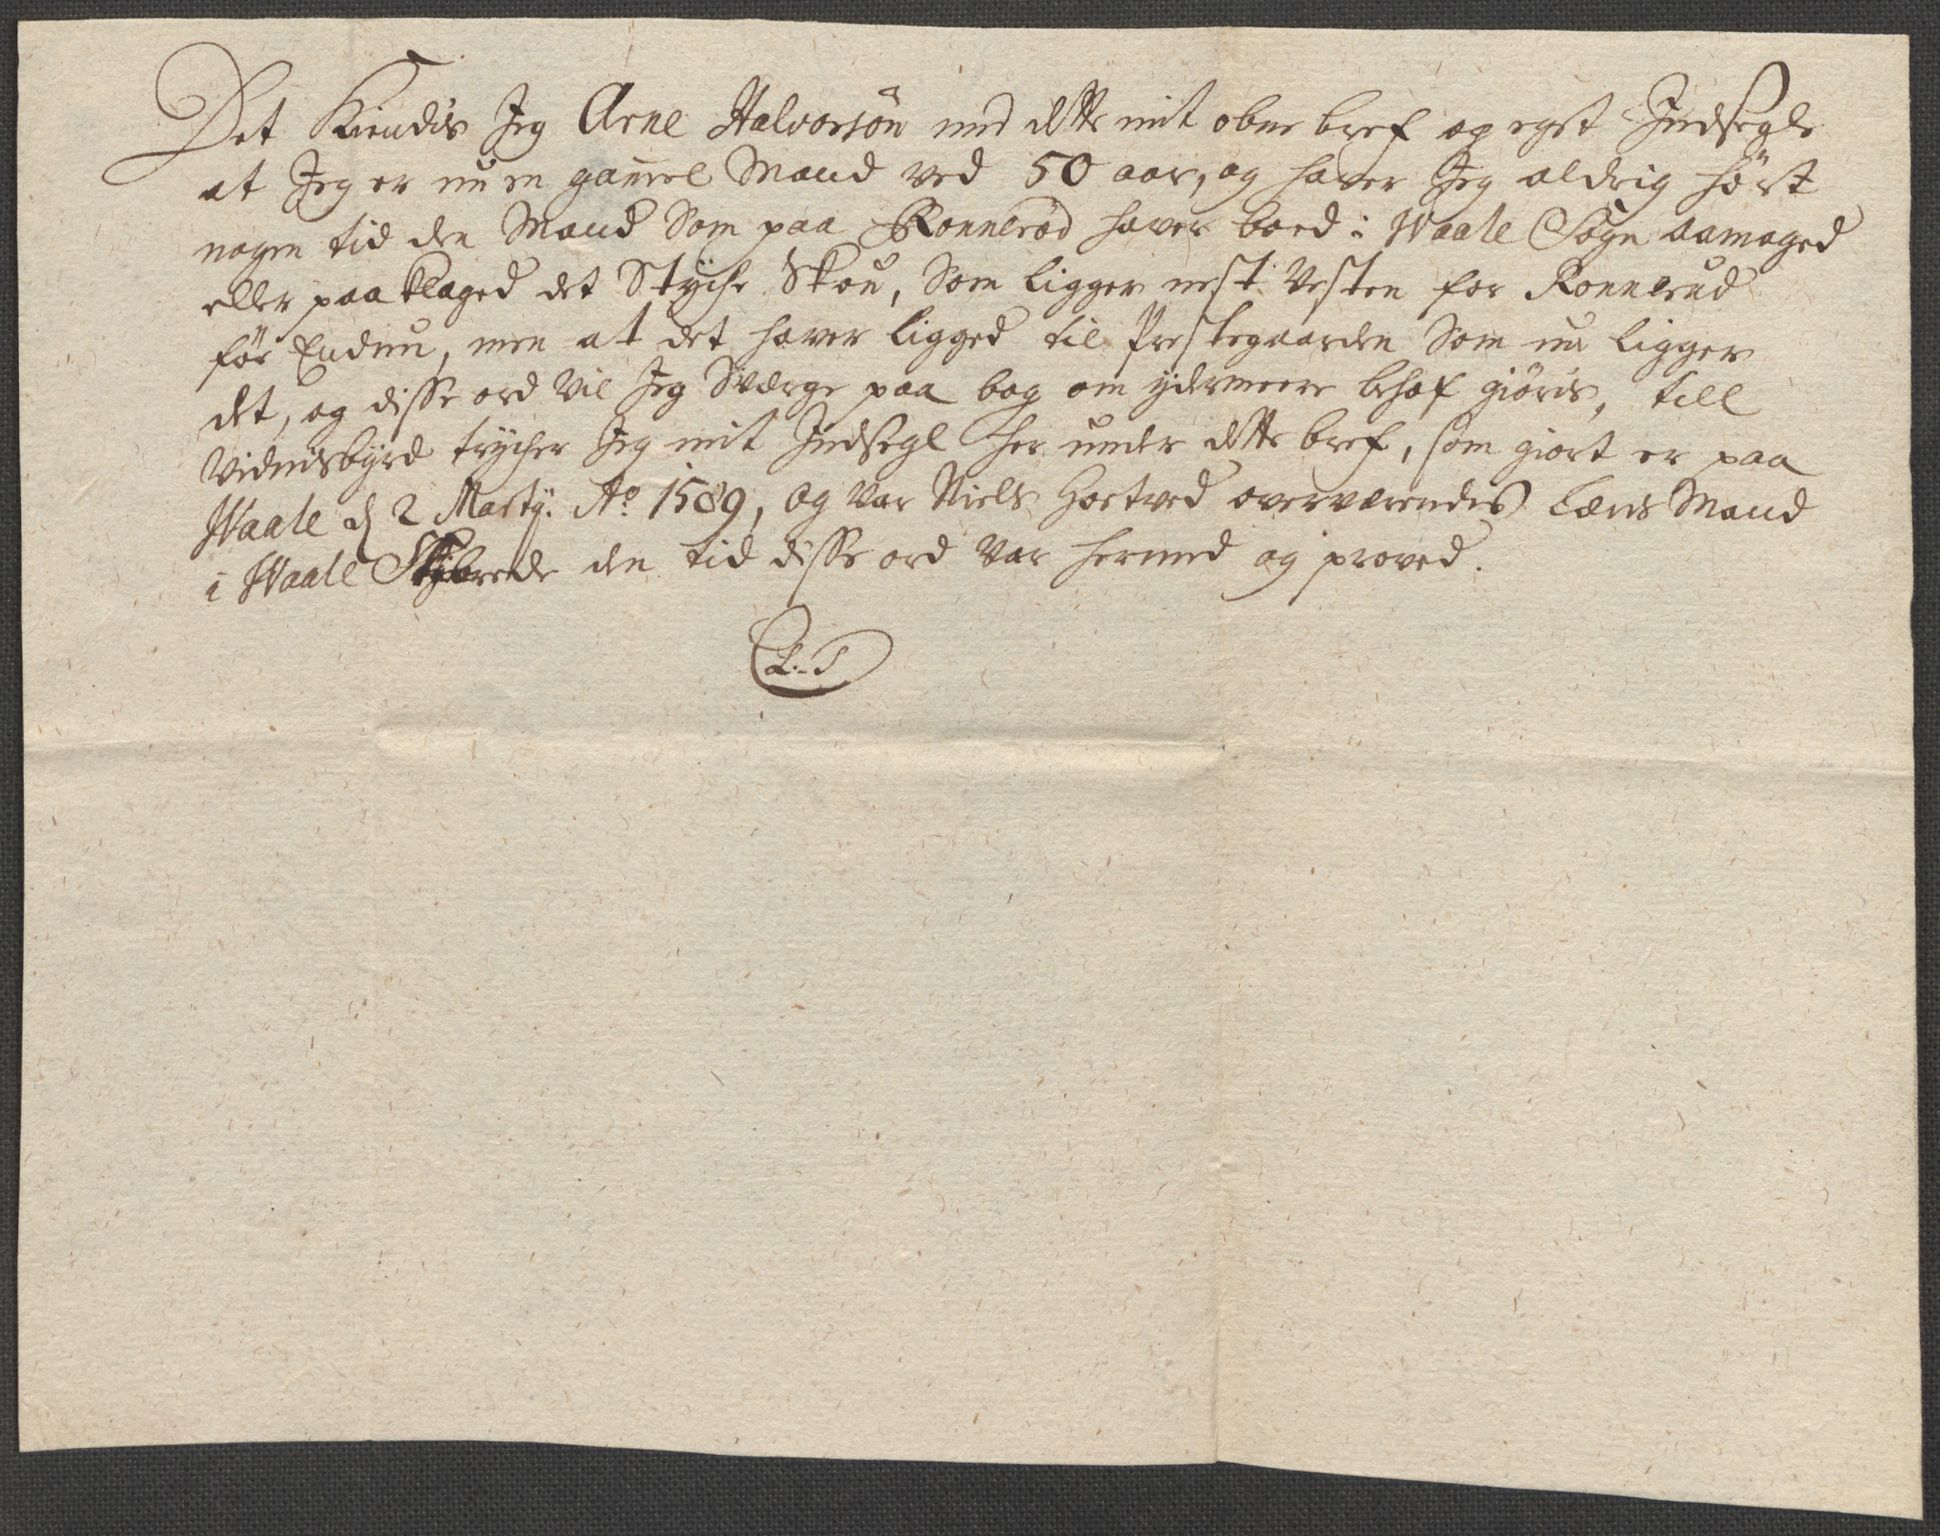 Det Kiendis Jeg Arne Halvorsön med dette mit obne bref og egit Indsegle
at Jeg er nu en gam̄el Mand ved 50 aar, og haver Jeg aldrig hört
nogen tid den Mand Som paa Ronnerød haver boed i Waale Sogn aamaged
eller paaklaged det Styche Skou, Som ligger nest Vesten for Ronnerud
för Endnu, men at det haver ligged til Prestegaarden Som nu ligger
det, og disse ord Vil Jeg Sværge paa bog om ÿdermeere behof giöris, till
Vidnisbÿrd trÿcher Jeg mit Indsegl her under dette bref, som giort er paa
Waale d 2 Martÿ. Aº 1589, og var Niels Hortved overværendis Læns Mand
i Waale Skibrede den tid disse ord var hermed og proved.
L. S